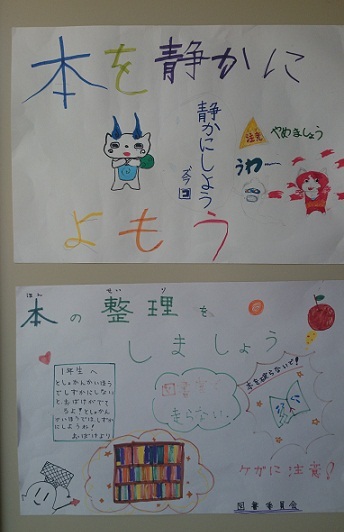 本を静かに
静かにしよう
注意
やめましょう
うわー
よもう
ほん せいり
本の整理を
しましょう
1年生へ
としょかんがいほう
でしずかにしないと
おばけがでて
るよ!としょかん
ではしずか
にしようね!
おばけより
図書室で
走らない。
本を破らないで!
ケガに注意!
図書委員会